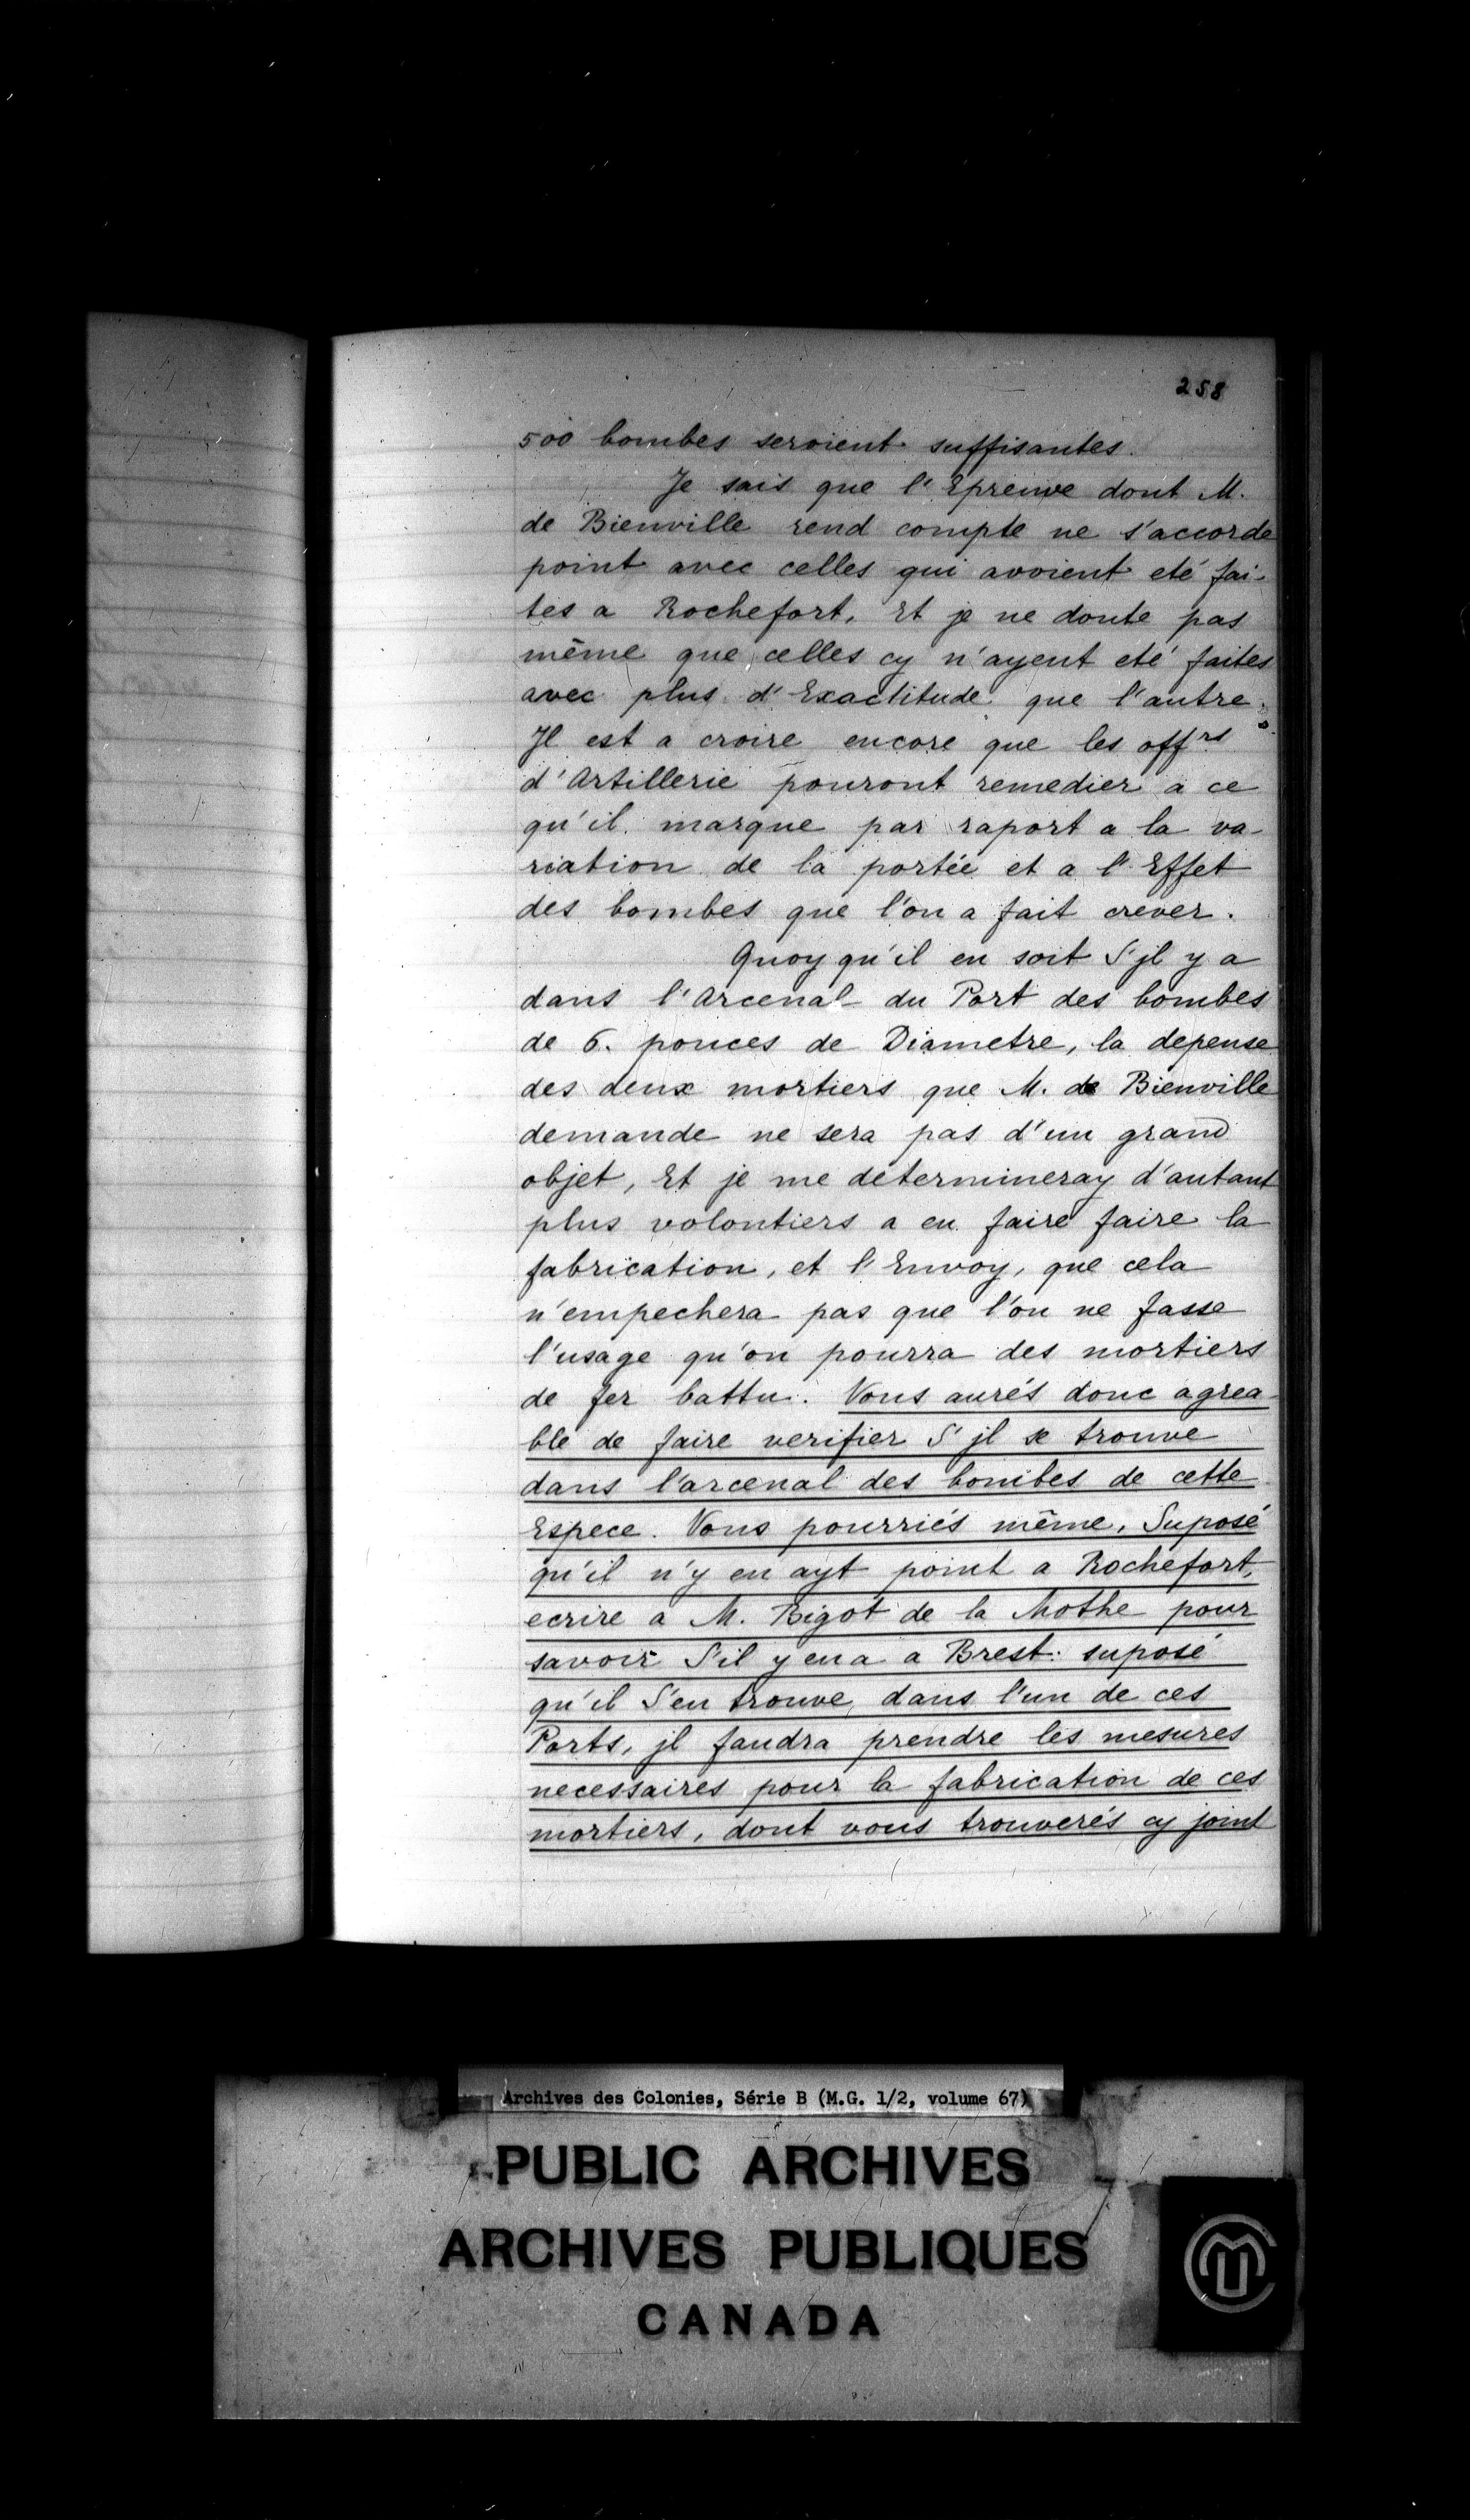 258
500 bombes seroient suffisantes.
Je sais que l'Epreuve dont M.
de Bienville rend compte ne s'accorde
point avec celles qui avoient eté fai-
tes a Rochefort, Et je ne doute pas
même que celles cy n'ayent eté faites
avec plus d'Exactitude que l'autre.
Jl est a croire encore que les offrs
d'Artillerie pouront remedier a ce
qu'il marque par raport a la va-
riation de la portée et a l'Effet
des bombes que l'on a fait crever.
Quoy qu'il en soit S'jl y a
dans l'Arcenal du Port des bombes
de 6. pouces de Diametre, la depense
des deux mortiers que M. de Bienville
demande ne sera pas d'un grand
objet, Et je me determineray d'autant
plus volontiers a en faire faire la
fabrication, et l'Envoy, que cela
n'empechera pas que l'on ne fasse
l'usage qu'on pourra des mortiers
de fer battu. Vous aurés donc agrea-
ble de faire verifier S'jl se trouve
dans l'arcenal des bombes de cette
Espece. Vous pourriés même, Suposé
qu'il n'y en ayt point a Rochefort,
ecrire a M. Bigot de la Mothe pour
savoir S'il y en a a Brest: suposé
qu'il S'en trouve, dans l'un de ces
Ports, jl faudra prendre les mesures
necessaires pour la fabrication de ces
mortiers, dont vous trouverés cy joint
Archives des Colonies, Série B (M.G. 1/2, volume 67)
PUBLIC ARCHIVES
ARCHIVES PUBLIQUES
CANADA